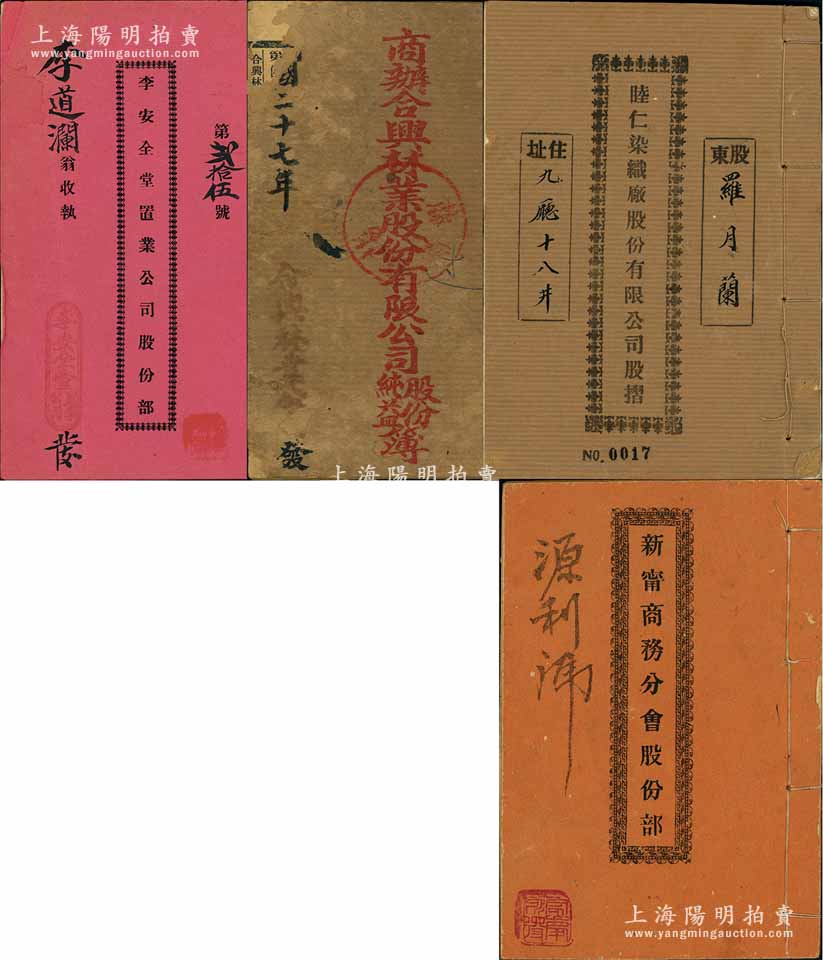 上海陽明拍賣
www.yangmingauction.com
第貳拾伍號
李安全堂置業公司股份部
李道瀾翁收執
發
商辦合興林業股份有限公司股份純益簿
國二十七年
合興林
發
上海陽明拍賣
www.yangmingauction.com
股東
羅月蘭
睦仁染織廠股份有限公司股摺
住址
九廳十八井
NO. 0017
上海陽明拍賣
www.yangmingauction.com
新甯商務分會股份部
源利號
上海陽明拍賣
www.yangmingauction.com